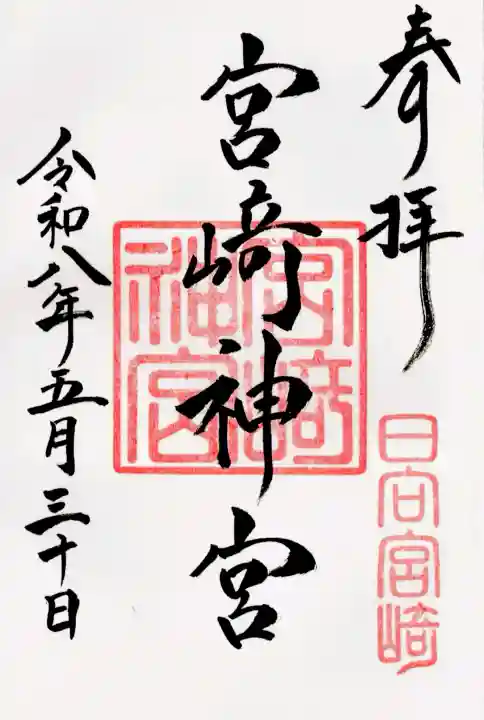 奉拝
日向宮崎
宮﨑神宮
宮崎神宮
令和八年五月三十日